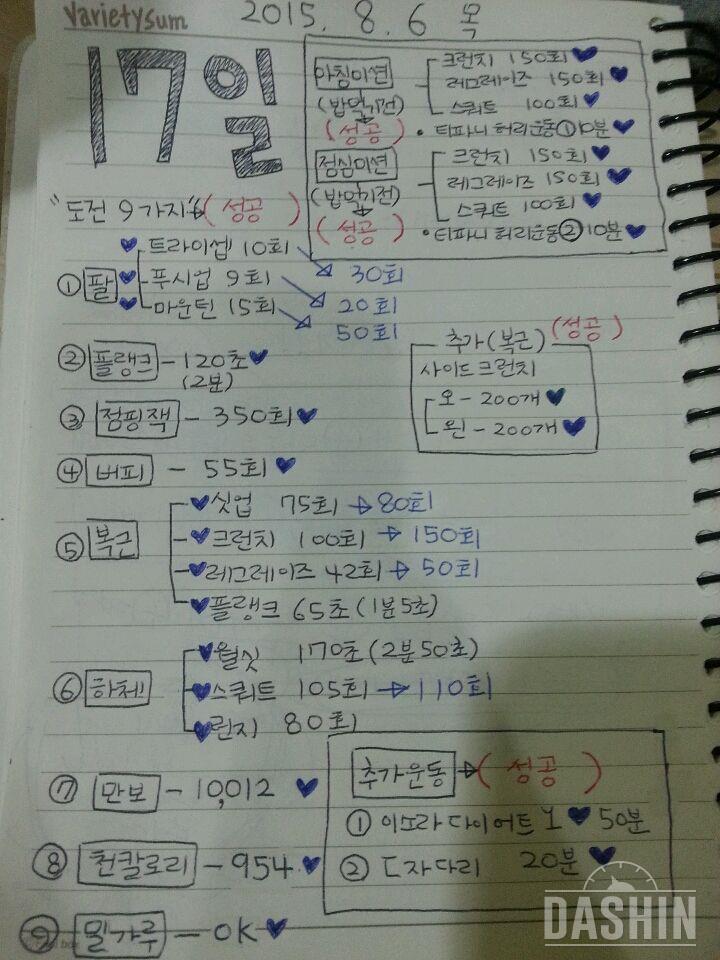 Varietysum
2015. 8. 6 목
17일
아침미션
(밥먹기전)
(성공)
크런치 150회
레그레이즈 150회
스쿼트 100회
• 티파니 허리운동 ① 10분
점심미션
(밥먹기전)
(성공)
크런치 150회
레그레이즈 150회
스쿼트 100회
• 티파니 허리운동 ② 10분
"도전 9가지" → (성공)
① 팔
트라이셉 10회 → 30회
푸시업 9회 → 20회
마운틴 15회 → 50회
② 플랭크 - 120초
(2분)
③ 점핑잭 - 350회
④ 버피 - 55회
추가(복근) (성공)
사이드크런치
오 - 200개
왼 - 200개
⑤ 복근
싯업 75회 → 80회
크런치 100회 → 150회
레그레이즈 42회 → 50회
플랭크 65초 (1분5초)
⑥ 하체
월싯 170초 (2분 50초)
스쿼트 105회 → 110회
런지 80회
⑦ 만보 - 10,012
⑧ 천칼로리 - 954
⑨ 밀가루 - OK
추가운동 → (성공)
① 이소라 다이어트 1 50분
② ㄷ자다리 20분
다이어트는
DASHIN